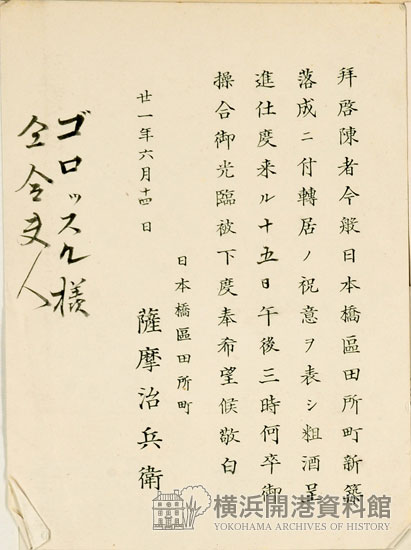 拜啓陳者今般日本橋區田所町新築
落成ニ付轉居ノ祝意ヲ表シ粗酒呈
進仕度来ル十五日午後三時何卒御
操合御光臨被下度奉希望候敬白
廿一年六月十四日
日本橋區田所町
薩摩治兵衛
ゴロッスル様
仝令夫人
横浜開港資料館
YOKOHAMA ARCHIVES OF HISTORY